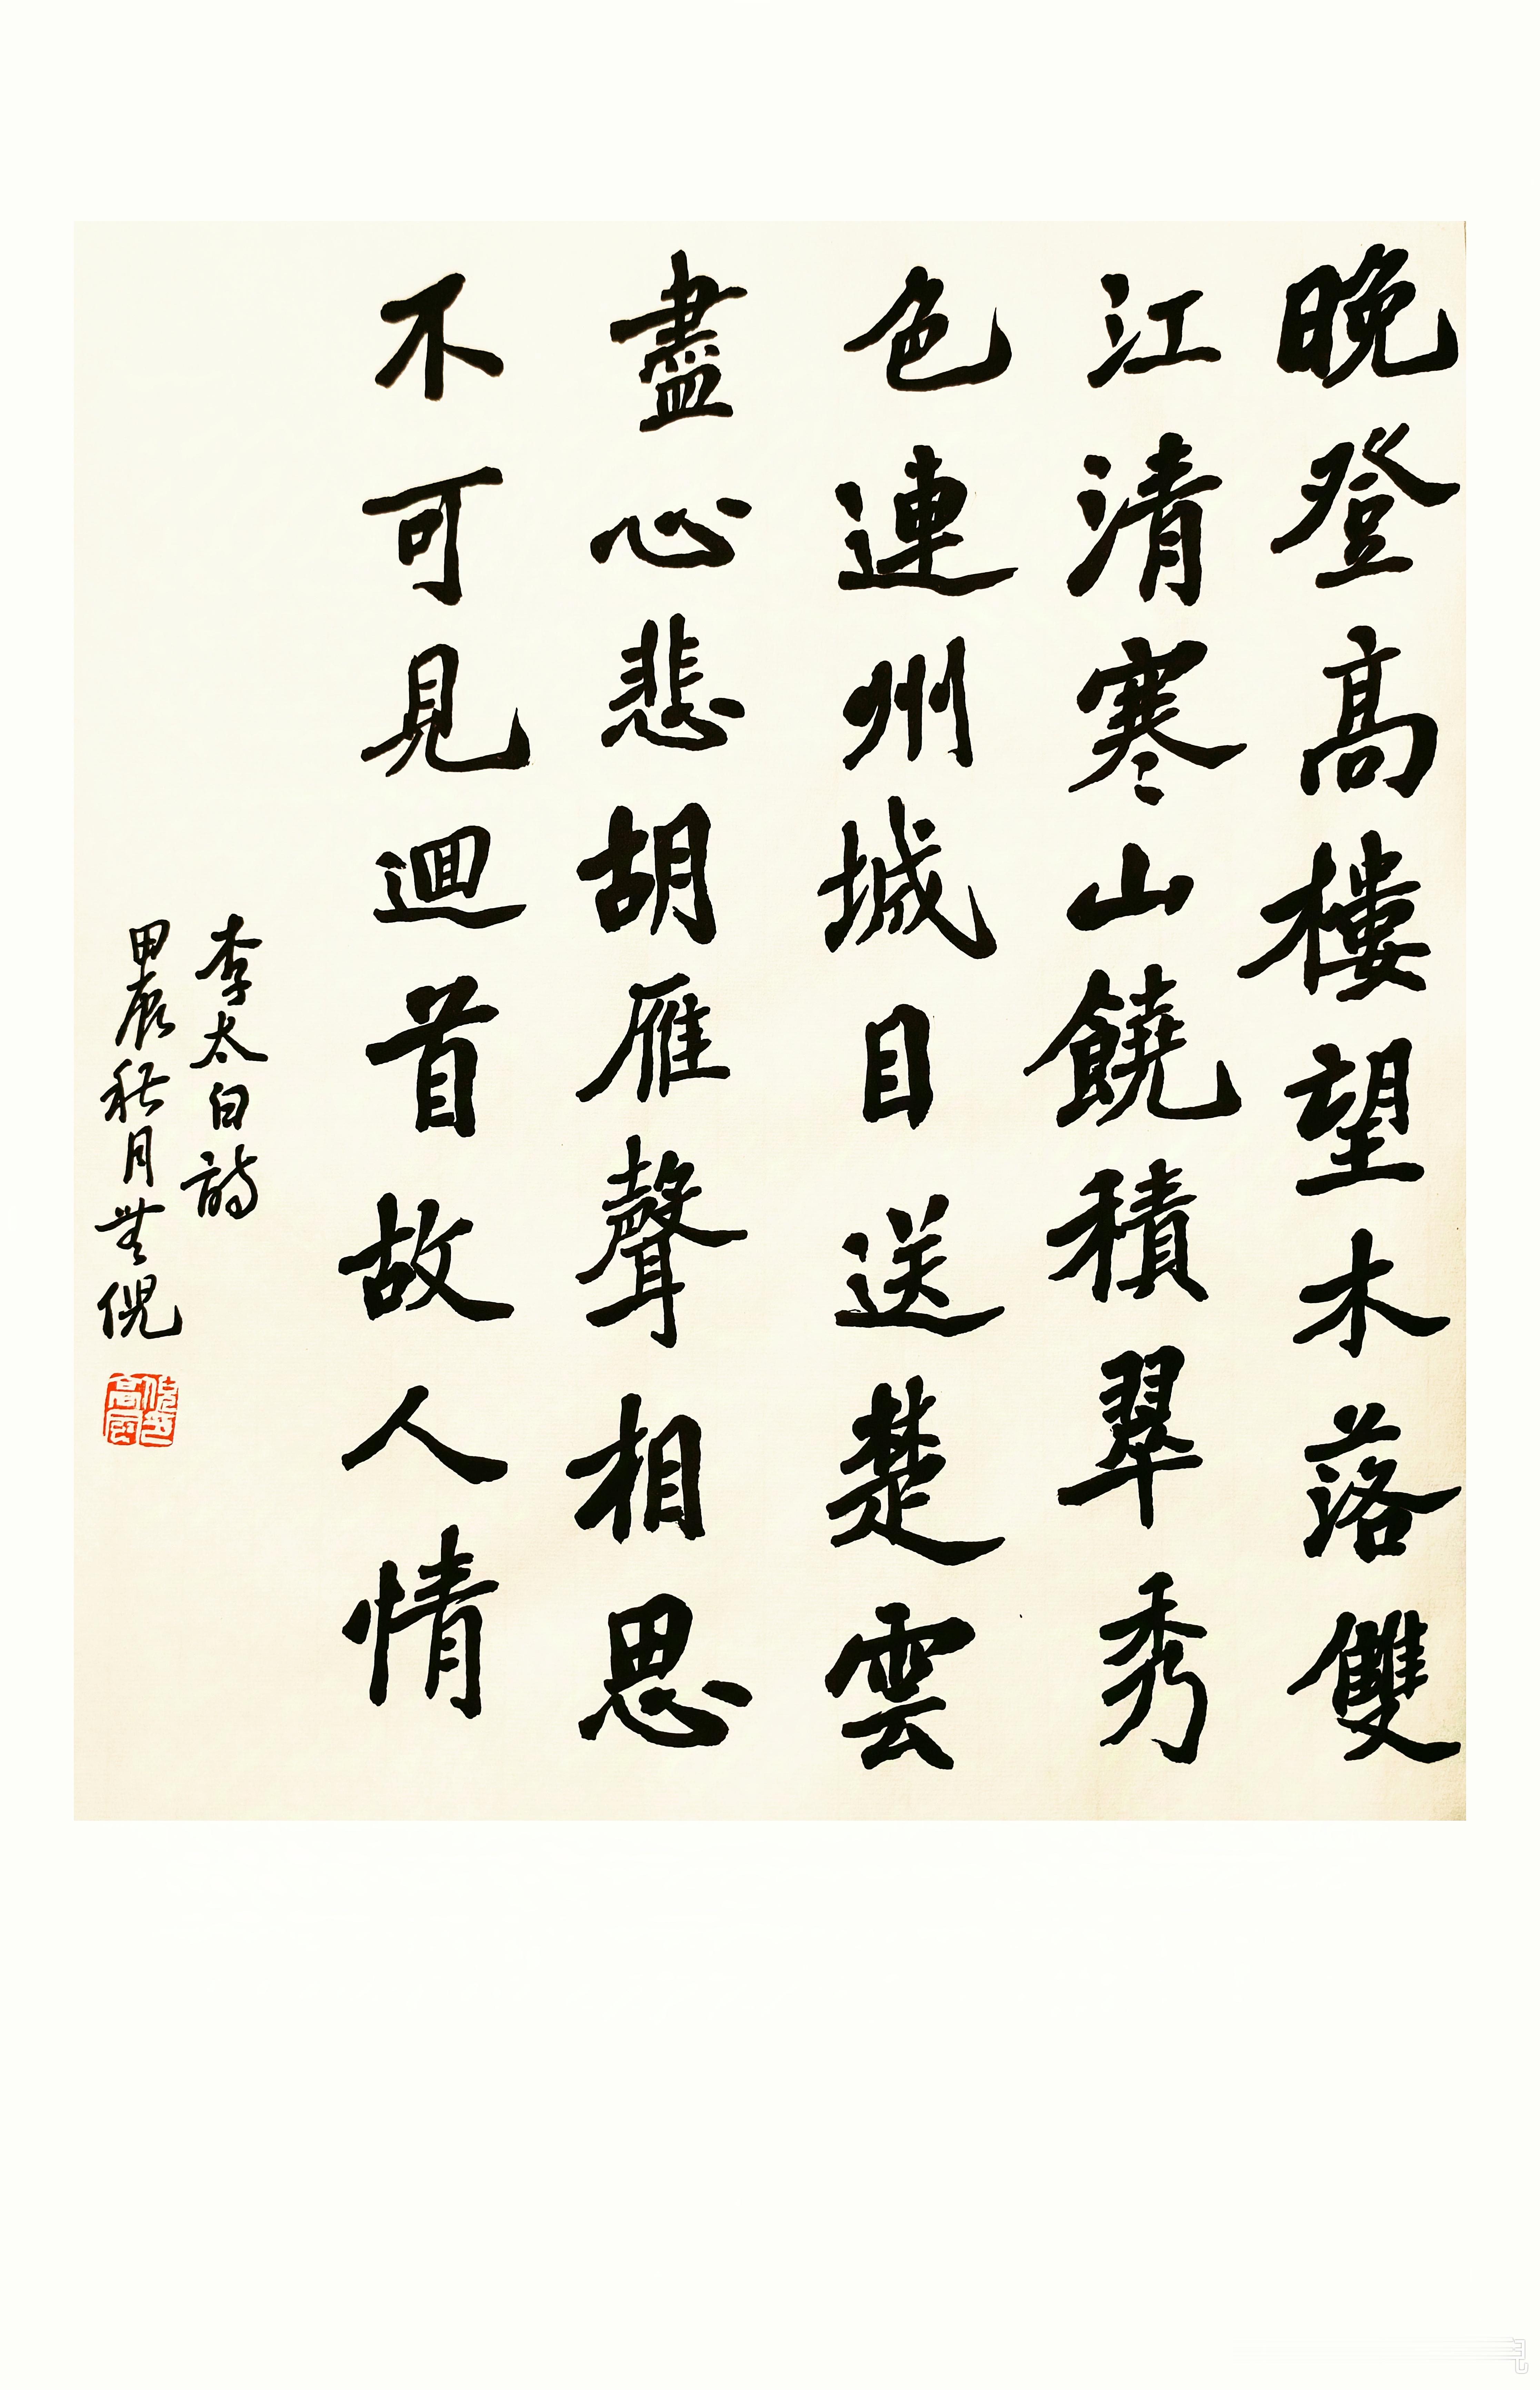 晚登高樓望木落雙
江清寒山饒積翠秀
色連州城目送楚雲
盡心悲胡雁聲相思
不可見迴首故人情
李太白詩
甲辰秋月無倪